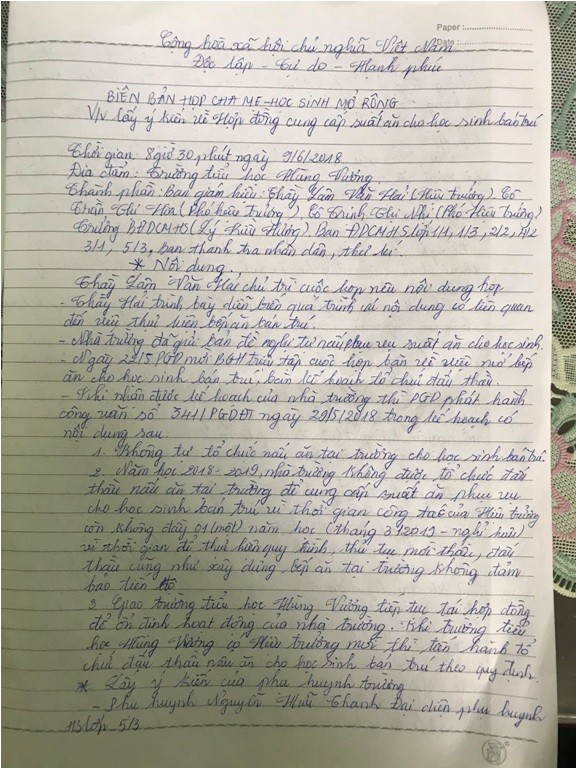 Paper :
Date :
Cộng hoà xã hội chủ nghĩa Việt Nam
Độc lập - Tự do - Hạnh phúc
BIÊN BẢN HỌP CHA MẸ HỌC SINH MỞ RỘNG
V/v lấy ý kiến về Hợp đồng cung cấp suất ăn cho học sinh bán trú
Thời gian 8 giờ 30 phút ngày 9/6/2018
Địa điểm: Trường tiểu học Hùng Vương
Thành phần: Ban giám hiệu: Thầy Lâm Văn Hai (Hiệu trưởng). Cô
Trần Thị Hòa (Phó hiệu trưởng). Cô Trịnh Thị Nhi (Phó Hiệu trưởng)
Trưởng BĐDCMHS (Lý Hữu Hương). Ban ĐDCMHS lớp 1/1, 1/3, 2/2, 4/2
3/1, 5/3, ban thanh tra nhân dân, thư ký.
* Nội dung.
Thầy Lâm Văn Hai chủ trì cuộc họp nêu nội dung họp
- Thầy Hai trình bày diễn biến quá trình và nội dung có liên quan
đến việc thực hiện bếp ăn bán trú.
- Nhà trường đã gửi bản đề nghị tự nấu phục vụ suất ăn cho học sinh.
- Ngày 22/5 PGD mời BGH triệu tập cuộc họp bàn về việc mở bếp
ăn cho học sinh bán trú, bàn kế hoạch tổ chức đấu thầu.
- Khi nhận được kế hoạch của nhà trường thì PGD phát hành
công văn số 341/PGDĐT ngày 29/5/2018 trong kế hoạch có
nội dung sau
1. Không tự tổ chức nấu ăn tại trường cho học sinh bán trú
2. Năm học 2018-2019, nhà trường không được tổ chức đấu
thầu nấu ăn tại trường để cung cấp suất ăn phục vụ
cho học sinh bán trú vì thời gian công tác của Hiệu trưởng
còn không đầy 01 (một) năm học (tháng 3/2019 - nghỉ hưu)
vì thời gian để thực hiện quy trình, thủ tục mời thầu, đấu
thầu cũng như xây dựng bếp ăn tại trường không đảm
bảo tiến độ
3. Giao trường tiểu học Hùng Vương tiếp tục tái hợp đồng
để ổn định hoạt động của nhà trường. Khi trường tiểu
học Hùng Vương có Hiệu trưởng mới thì tiến hành tổ
chức đấu thầu nấu ăn cho học sinh bán trú theo quy định.
* Lấy ý kiến của phụ huynh trường
- Phụ huynh Nguyễn Hữu Thanh Đại diện phụ huynh
HS lớp 5/3